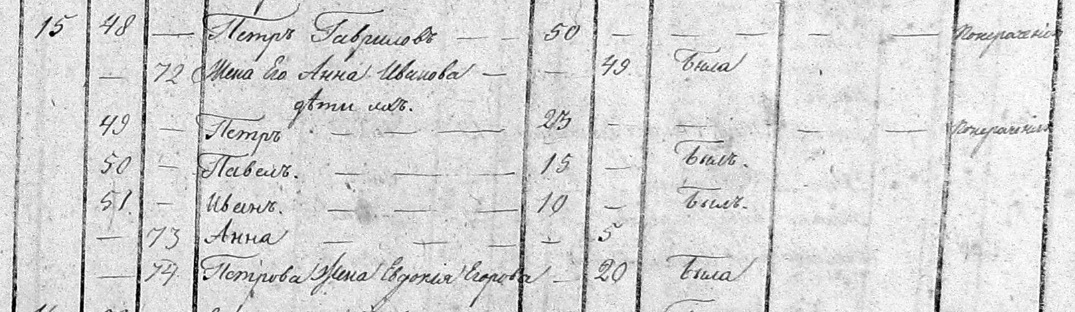 15 48 — Петръ Гавриловъ — — 50 — — — — —
— 72 Жена Его Анна Иванова — — 49 Была
дѣти ихъ.
49 — Петръ — — — 23 — — — — —
50 — Павелъ. — — — 15 — Былъ.
51. — Иванъ. — — — 10 — Былъ.
— 73 Анна — — — — 5
— 74 Петрова Жена Евдокия Егорова — 20 Была